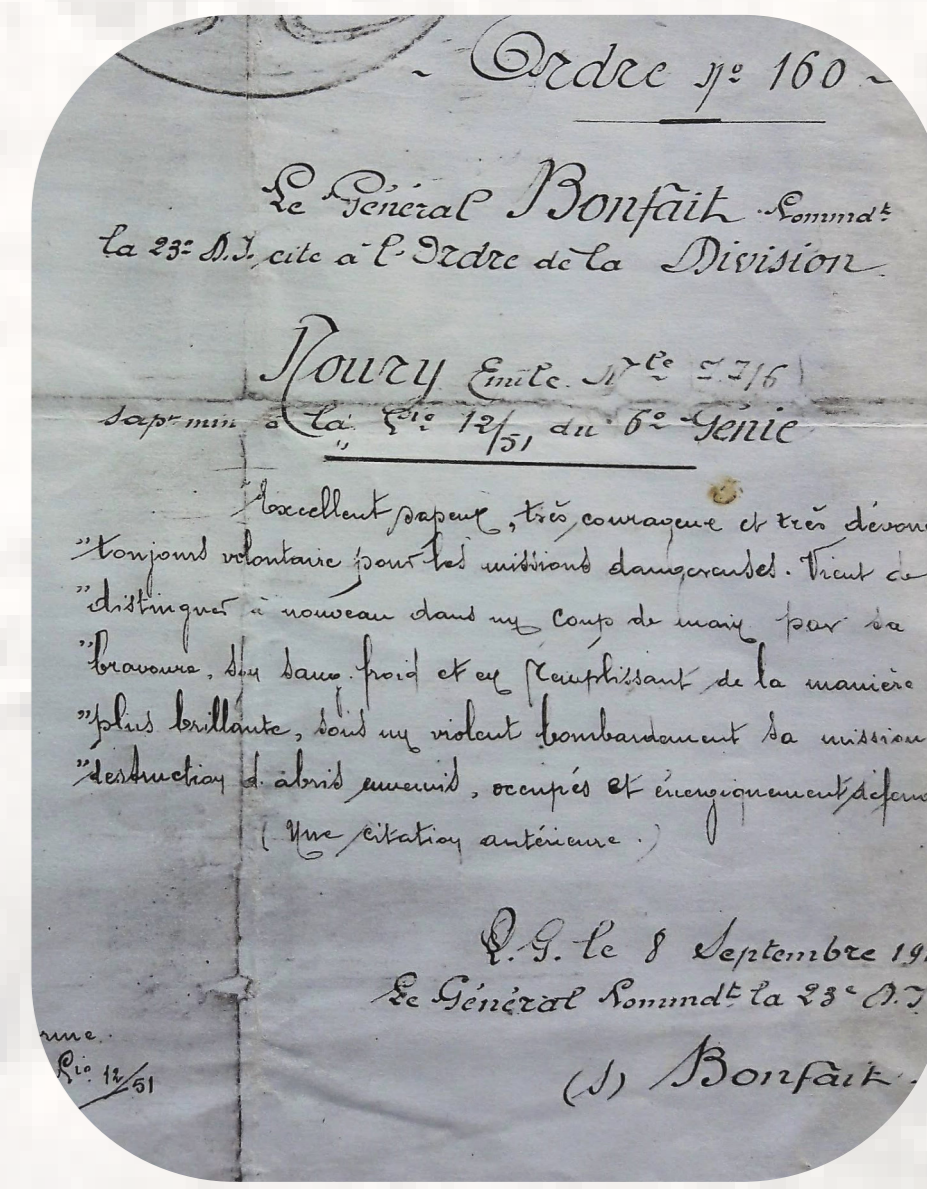 ~ Ordre nº 160 ~
Le Général Bonfait Commdt
la 23e D.I. cite à l'Ordre de la Division
Noury Emile Mle
sapr min à la Cie 12/51 du 6e Génie
Excellent sapeur, très courageux et très dévou
"toujours volontaire pour les missions dangereuses. Vient de
"distinguer à nouveau dans un coup de main par sa
"bravoure, son sang froid et en remplissant de la manière
"plus brillante, sous un violent bombardement sa mission
"destruction d'abris ennemis, occupés et énergiquement défend
(Une citation antérieure.)
Q.G. le 8 Septembre 191
Le Général Commdt la 23e D.I
(S) Bonfait.
rme.
Cie 12/51